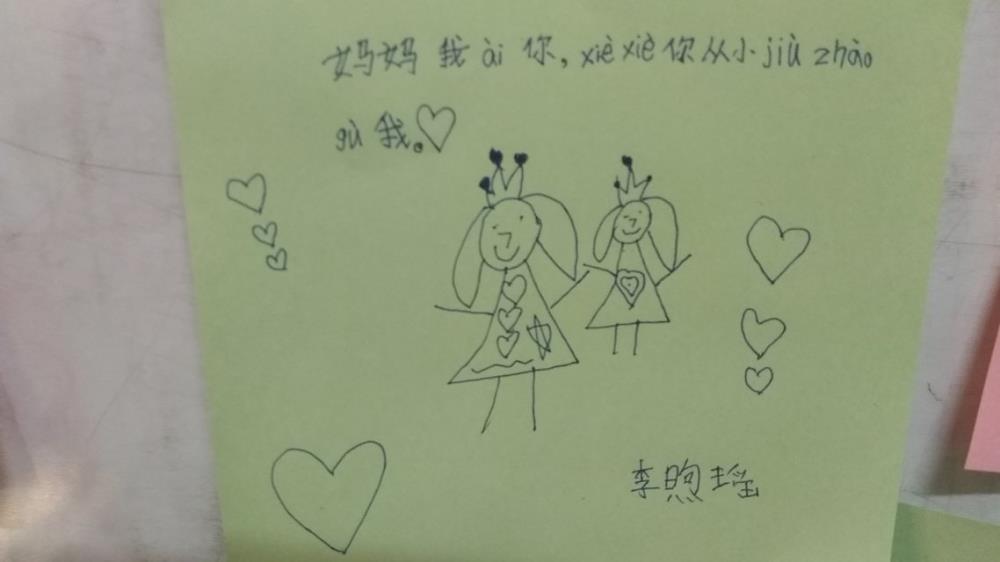 妈妈 我 ài 你, xiè xiè 你从小 jiù zhào
gù 我。
李煦瑶